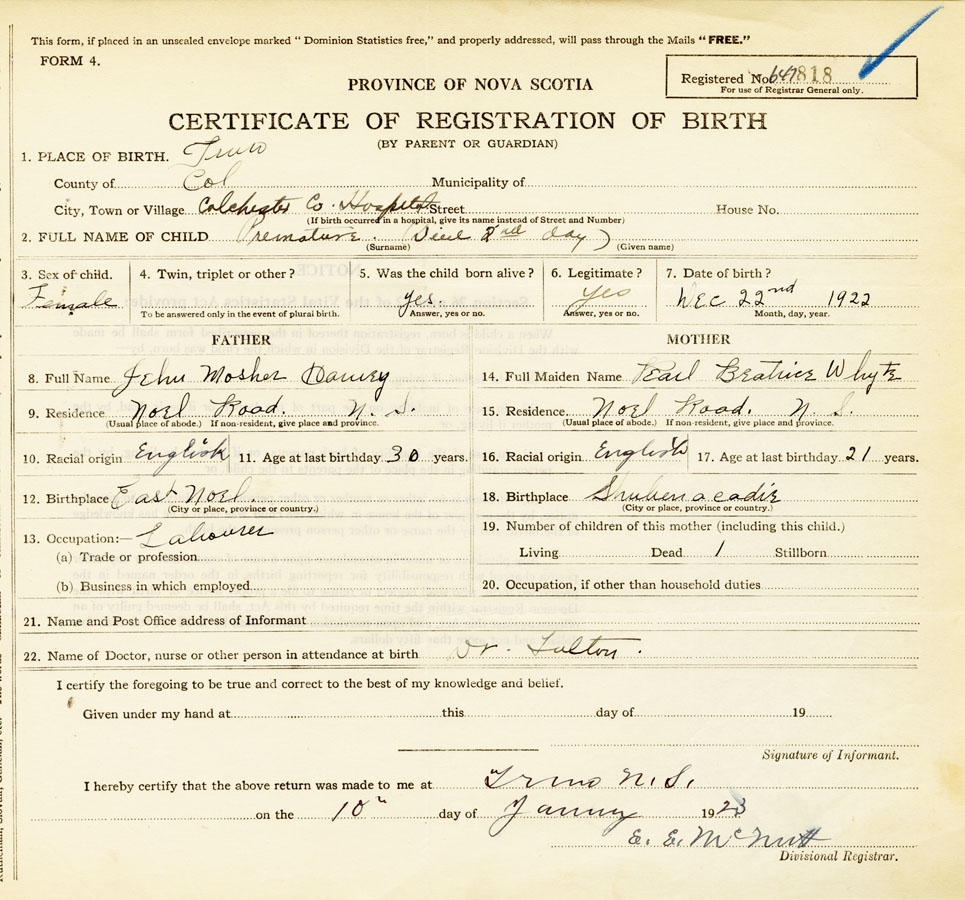 This form, if placed in an unsealed envelope marked "Dominion Statistics free," and properly addressed, will pass through the Mails "FREE."
FORM 4.
Registered No. 818
For use of Registrar General only.
PROVINCE OF NOVA SCOTIA
CERTIFICATE OF REGISTRATION OF BIRTH
(BY PARENT OR GUARDIAN)
1. PLACE OF BIRTH. Truro
County of Col Municipality of
City, Town or Village Colchester Co. Hospital Street House No.
(If birth occurred in a hospital, give its name instead of Street and Number)
2. FULL NAME OF CHILD Premature. (Died 2nd day)
(Surname) (Given name)
3. Sex of child. 4. Twin, triplet or other? 5. Was the child born alive? 6. Legitimate? 7. Date of birth?
Female yes yes Dec 22nd 1922
To be answered only in the event of plural birth. Answer, yes or no. Answer, yes or no. Month, day, year.
FATHER MOTHER
8. Full Name John Mosher 14. Full Maiden Name Pearl Beatrice Whyte
9. Residence Noel Road. N. S. 15. Residence. Noel Road. N. S.
(Usual place of abode.) If non-resident, give place and province. (Usual place of abode.) If non-resident, give place and province.
10. Racial origin English 11. Age at last birthday 30 years. 16. Racial origin English 17. Age at last birthday 21 years.
12. Birthplace East Noel. 18. Birthplace Shubenacadie
(City or place, province or country.) (City or place, province or country.)
13. Occupation:— Labourer 19. Number of children of this mother (including this child.)
(a) Trade or profession Living Dead 1 Stillborn
(b) Business in which employed 20. Occupation, if other than household duties
21. Name and Post Office address of Informant
22. Name of Doctor, nurse or other person in attendance at birth Dr. Fulton.
I certify the foregoing to be true and correct to the best of my knowledge and belief.
Given under my hand at this day of 19
Signature of Informant.
I hereby certify that the above return was made to me at Truro N.S.
on the 10th day of January 1923
E. E. McNutt
Divisional Registrar.